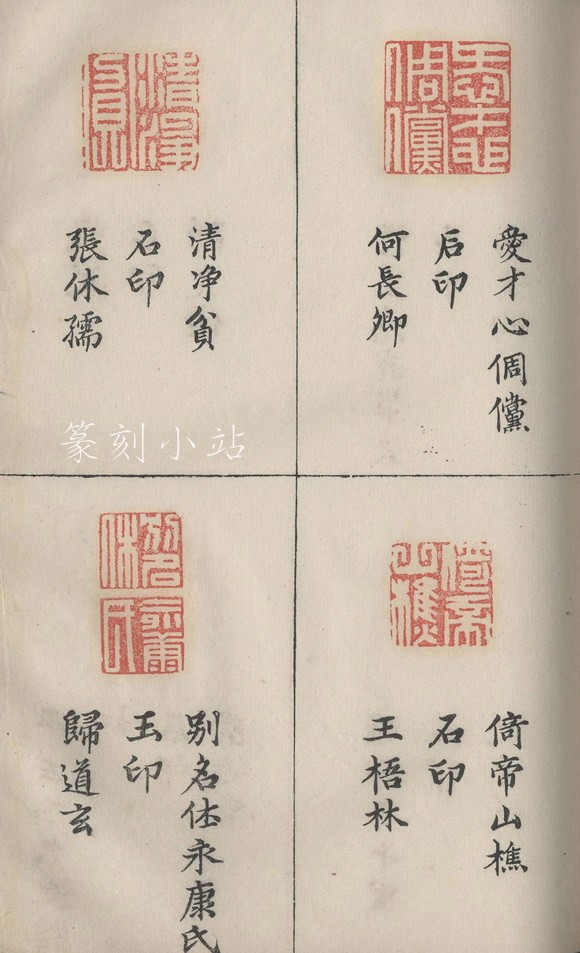 愛才心倜儻
石印
何長卿
清净貧
石印
張休孺
篆刻小站
倚帝山樵
石印
王梧林
别名休永康氏
玉印
歸道玄